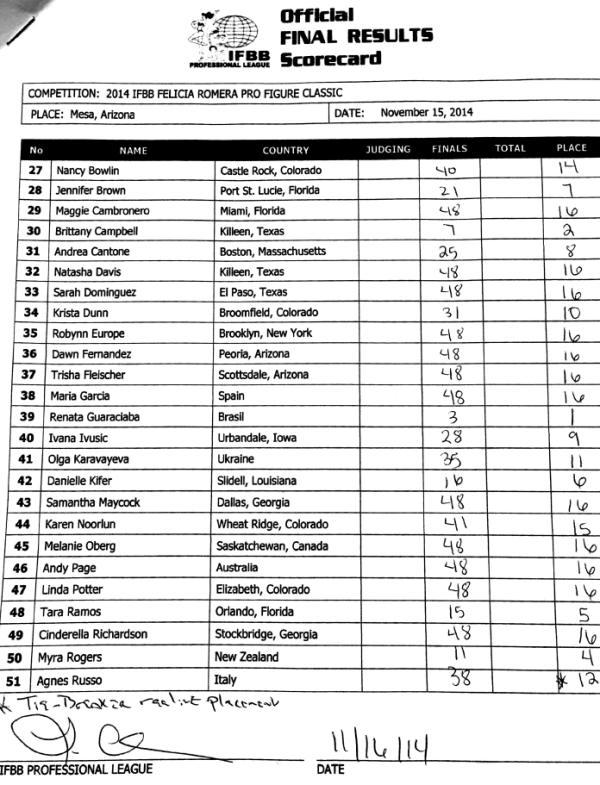 Official
FINAL RESULTS
Scorecard
IFBB
PROFESSIONAL LEAGUE
COMPETITION: 2014 IFBB FELICIA ROMERA PRO FIGURE CLASSIC
PLACE: Mesa, Arizona DATE: November 15, 2014
No NAME COUNTRY JUDGING FINALS TOTAL PLACE
27 Nancy Bowlin Castle Rock, Colorado 40 14
28 Jennifer Brown Port St. Lucie, Florida 21 7
29 Maggie Cambronero Miami, Florida 48 16
30 Brittany Campbell Killeen, Texas 7 2
31 Andrea Cantone Boston, Massachusetts 25 8
32 Natasha Davis Killeen, Texas 48 16
33 Sarah Dominguez El Paso, Texas 48 16
34 Krista Dunn Broomfield, Colorado 31 10
35 Robynn Europe Brooklyn, New York 48 16
36 Dawn Fernandez Peoria, Arizona 48 16
37 Trisha Fleischer Scottsdale, Arizona 48 16
38 Maria Garcia Spain 48 16
39 Renata Guaraciaba Brasil 3 1
40 Ivana Ivusic Urbandale, Iowa 28 9
41 Olga Karavayeva Ukraine 35 11
42 Danielle Kifer Slidell, Louisiana 16 6
43 Samantha Maycock Dallas, Georgia 48 16
44 Karen Noorlun Wheat Ridge, Colorado 41 15
45 Melanie Oberg Saskatchewan, Canada 48 16
46 Andy Page Australia 48 16
47 Linda Potter Elizabeth, Colorado 48 16
48 Tara Ramos Orlando, Florida 15 5
49 Cinderella Richardson Stockbridge, Georgia 48 16
50 Myra Rogers New Zealand 11 4
51 Agnes Russo Italy 38 * 12
* Tie-Breaker placement
11/16/14
IFBB PROFESSIONAL LEAGUE DATE